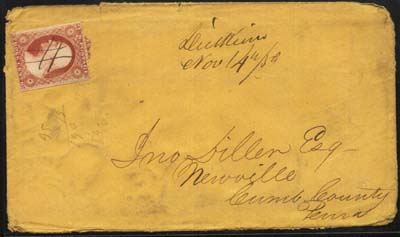 Dickinson
Nov 14th /54
Jno Diller Esq
Newville
Cumb County
Penna